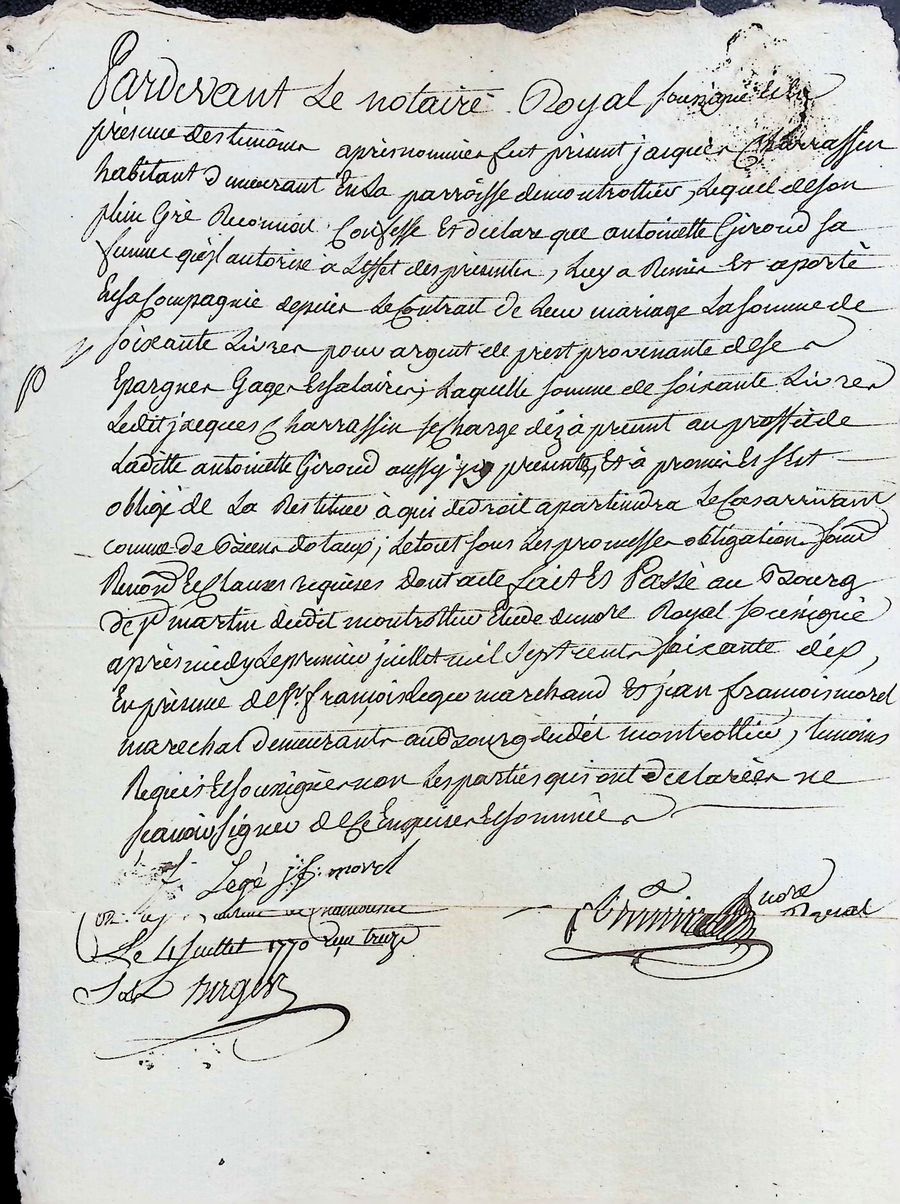 Pardevant Le notaire Royal soussigné et en
présence des temoins après nommés fut présent jacques Charrassin
habitant demeurant En La parroisse de montrottier, Lequel de son
plein Gré Reconnoit Confesse Et declare que antoinette Giroud sa
femme qu'il autorise à L'effet des présentes, Luy a Remis Et aporté
En sa Compagnie depuis Le Contrat de Leur mariage La somme de
soixante Livres pour argent de prest provenante de ses
Epargnes Gages Et salaires; Laquelle somme de soixante Livres
Ledit jacques Charrassin se Charge dézà présent au proffit de
Laditte antoinette Giroud aussy icy presente, Et à promis Et s'Est
obligé de La Restituer à qui de droit apartiendra Le Cas arrivant
comme de Biens dotaux; Le tout sous Les promesses obligations soumd
Renond Et Clauses requises dont acte fait Et Passé au Bourg
de st martin dudit montrottier Etude du nore Royal soussigné
après midy Le premier juillet mil sept cents soixante dix,
En présence de sr. françois Legé marchand Et jean françois morel
marechal demeurants au Bourg dudit montrottier, temoins
Requis Et soussignés non Les parties qui ont déclarées ne
scavoir signer de Ce Enquises Et sommées
Legé j: f: morel
nore Royal
Le 4 Juillet 1770 Reçu treize